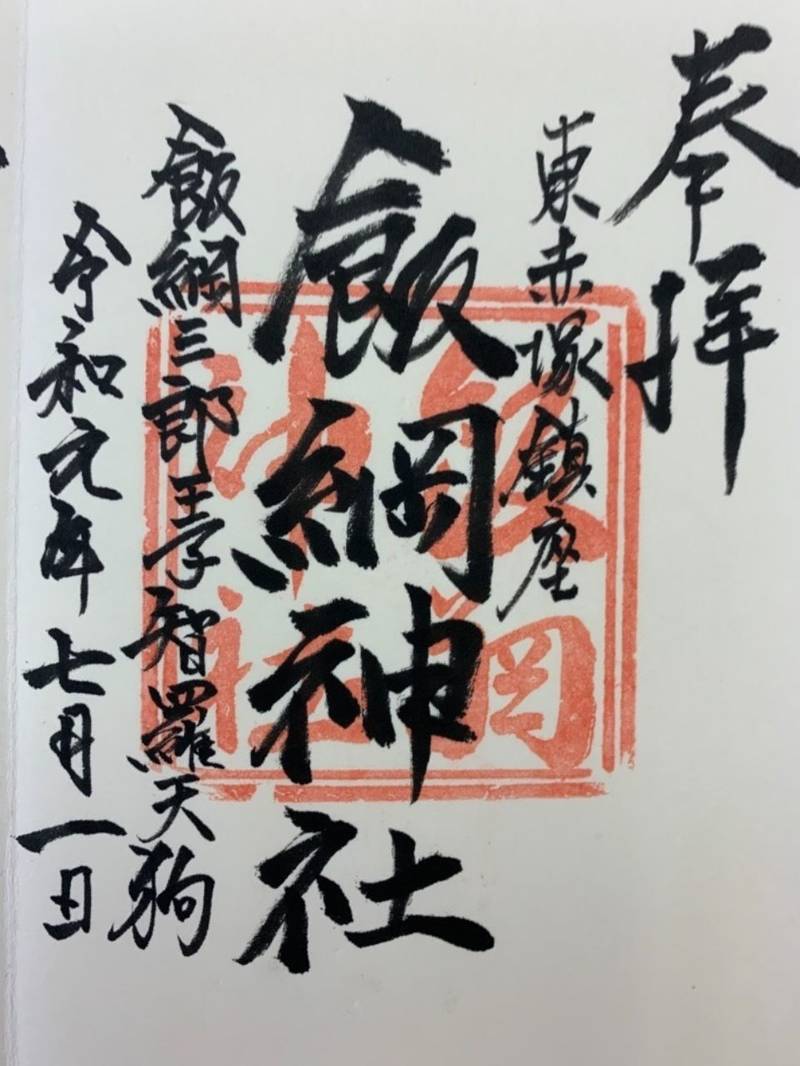 奉拝
東赤塚鎮座
飯綱神社
飯綱三郎王子智羅天狗
令和元年七月一日
飯綱
神社